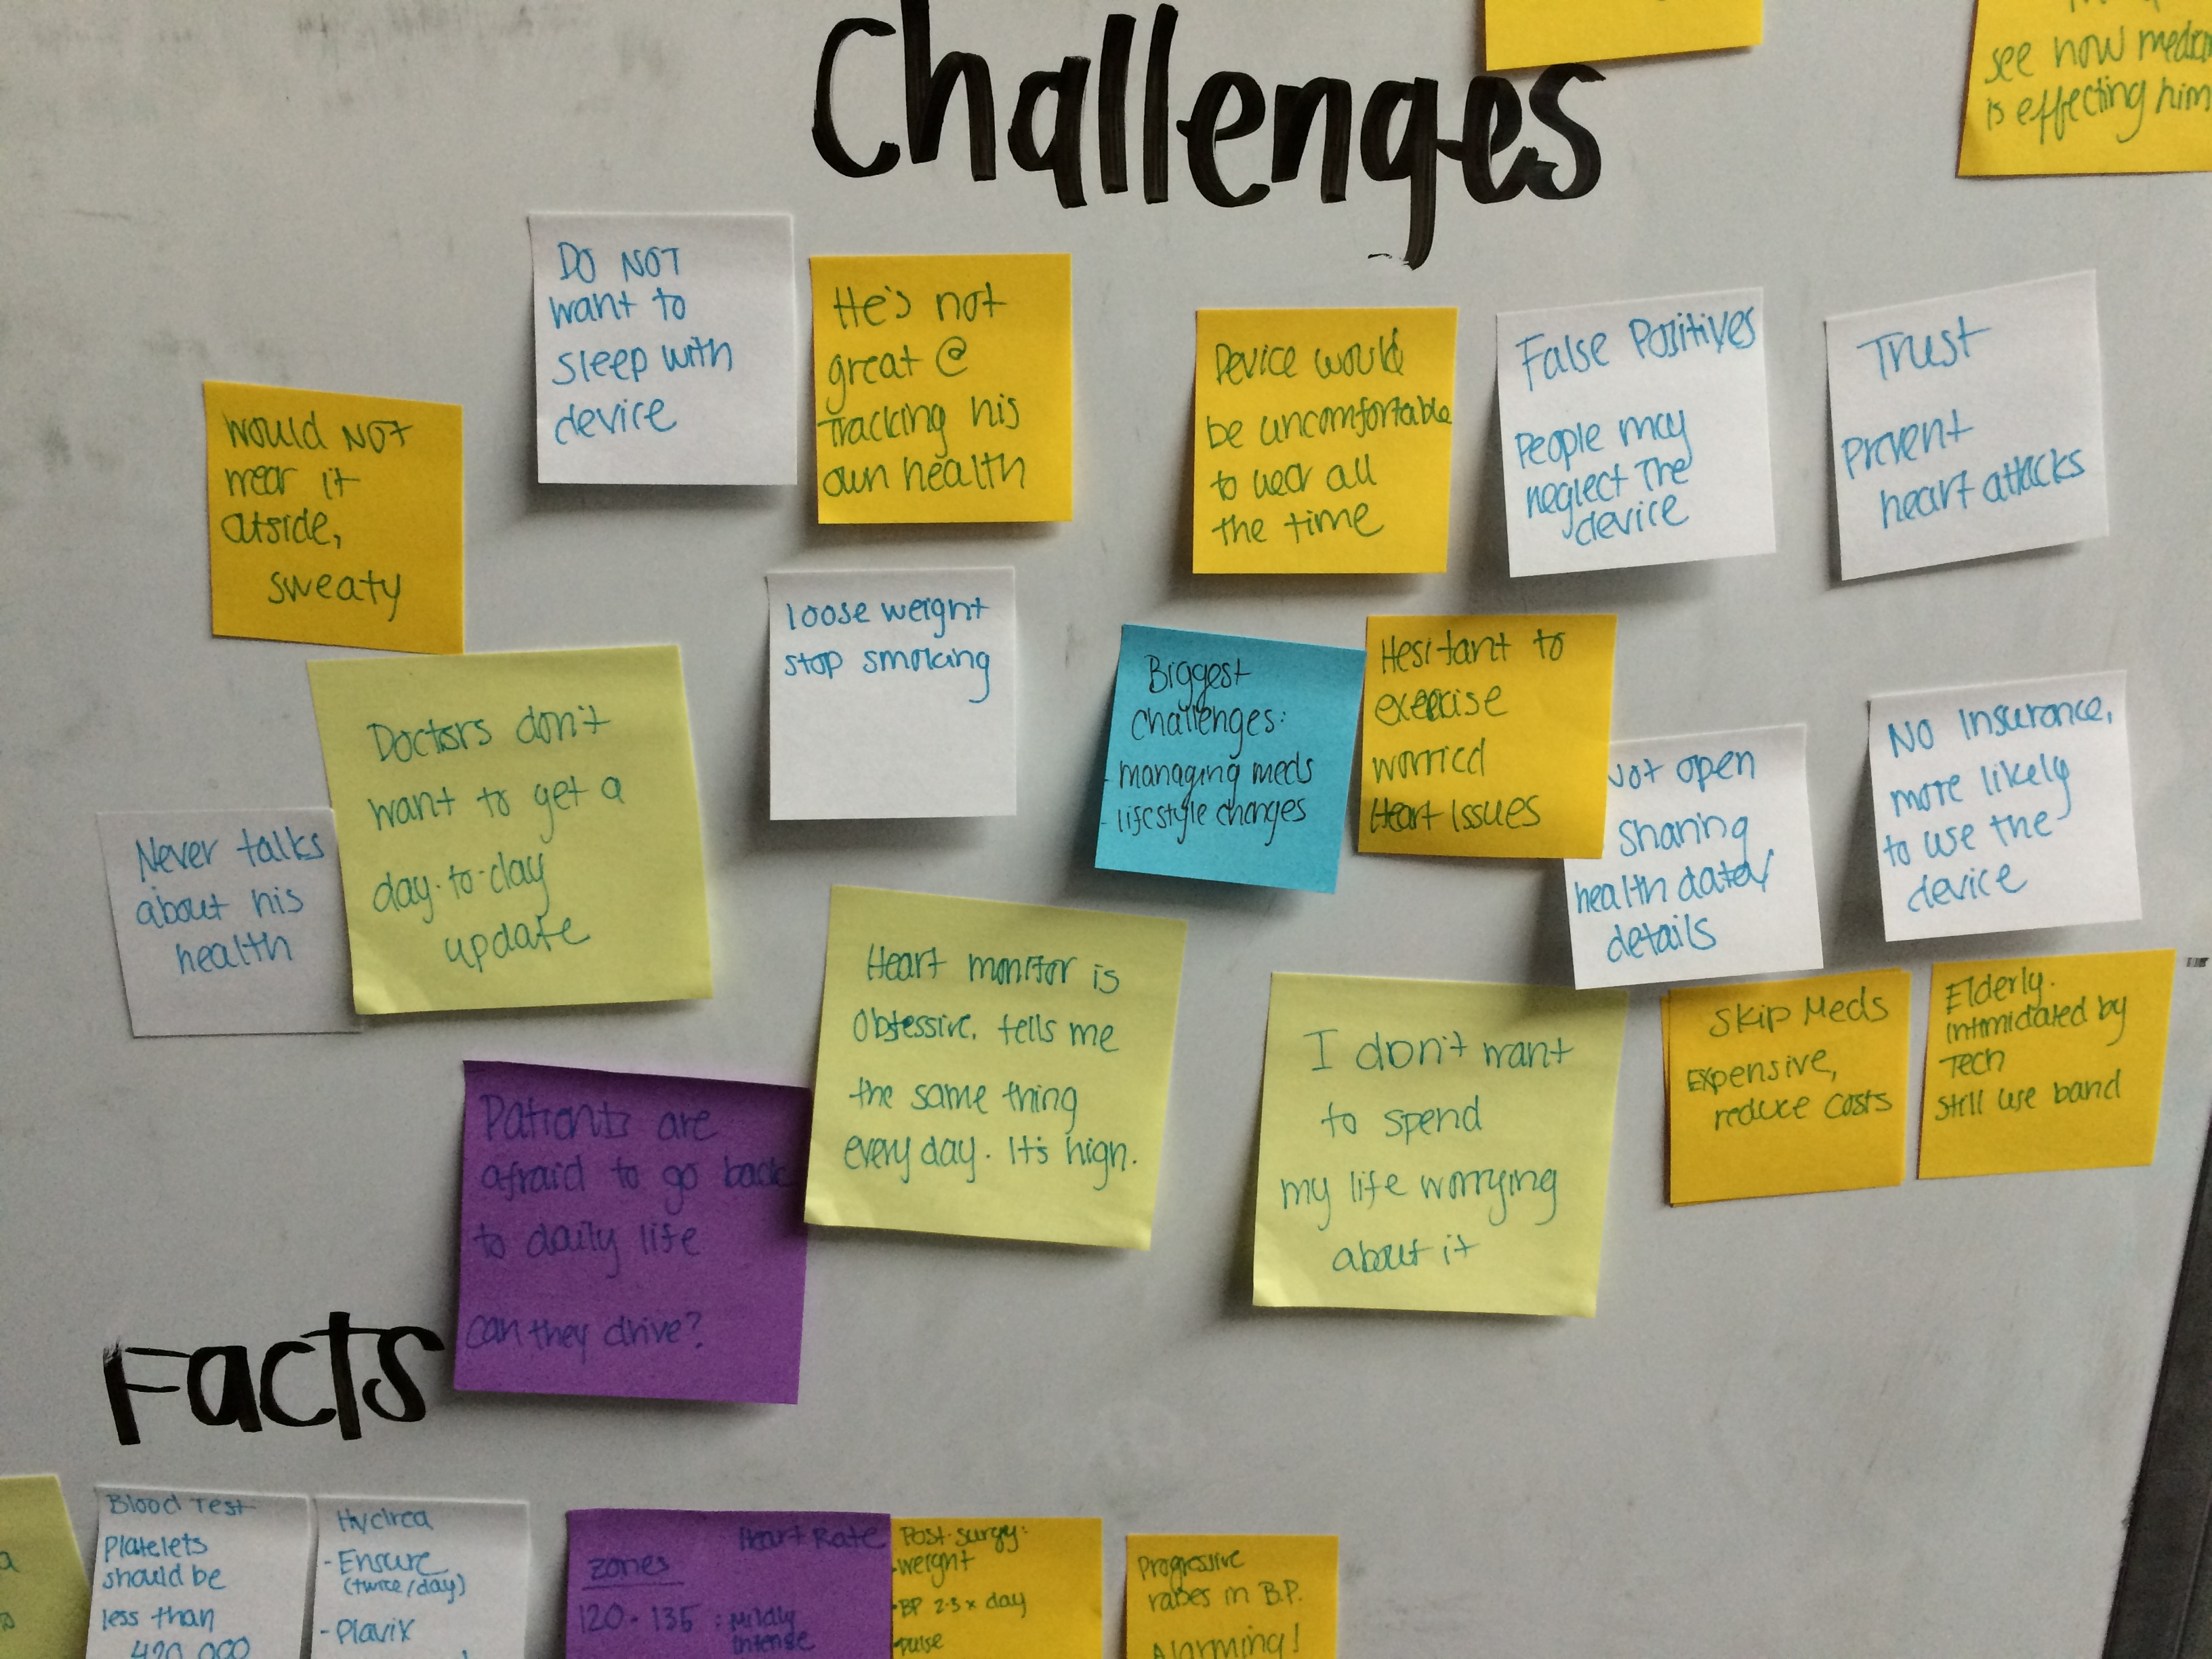 Challenges
see how
is effecting him
DO NOT
want to
sleep with
device
He's not
great @
tracking his
own health
Device would
be uncomfortable
to wear all
the time
False Positives
People may
neglect the
device
Trust
prevent
heart attacks
would NOT
wear it
outside,
sweaty
loose weight
stop smoking
Biggest
challenges:
- managing meds
- lifestyle changes
Hesitant to
exercise
worried
Heart Issues
Not open
sharing
health data/
details
NO Insurance,
more likely
to use the
device
Doctors don't
want to get a
day-to-day
update
Never talks
about his
health
Heart monitor is
Obsessive. tells me
the same thing
every day. It's high.
I don't want
to spend
my life worrying
about it
Skip Meds
Expensive,
reduce costs
Elderly.
intimidated by
Tech
still use band
Patients are
afraid to go back
to daily life
can they drive?
Facts
Blood Test
Platelets
should be
less than
420,000
Hydrea
- Ensure
(twice/day)
- Plavix
Heart Rate
zones
120-135 : Mildly
intense
Post-surgy:
- weight
- BP 2-3x day
- pulse
Progressive
raises in B.P.
Alarming!